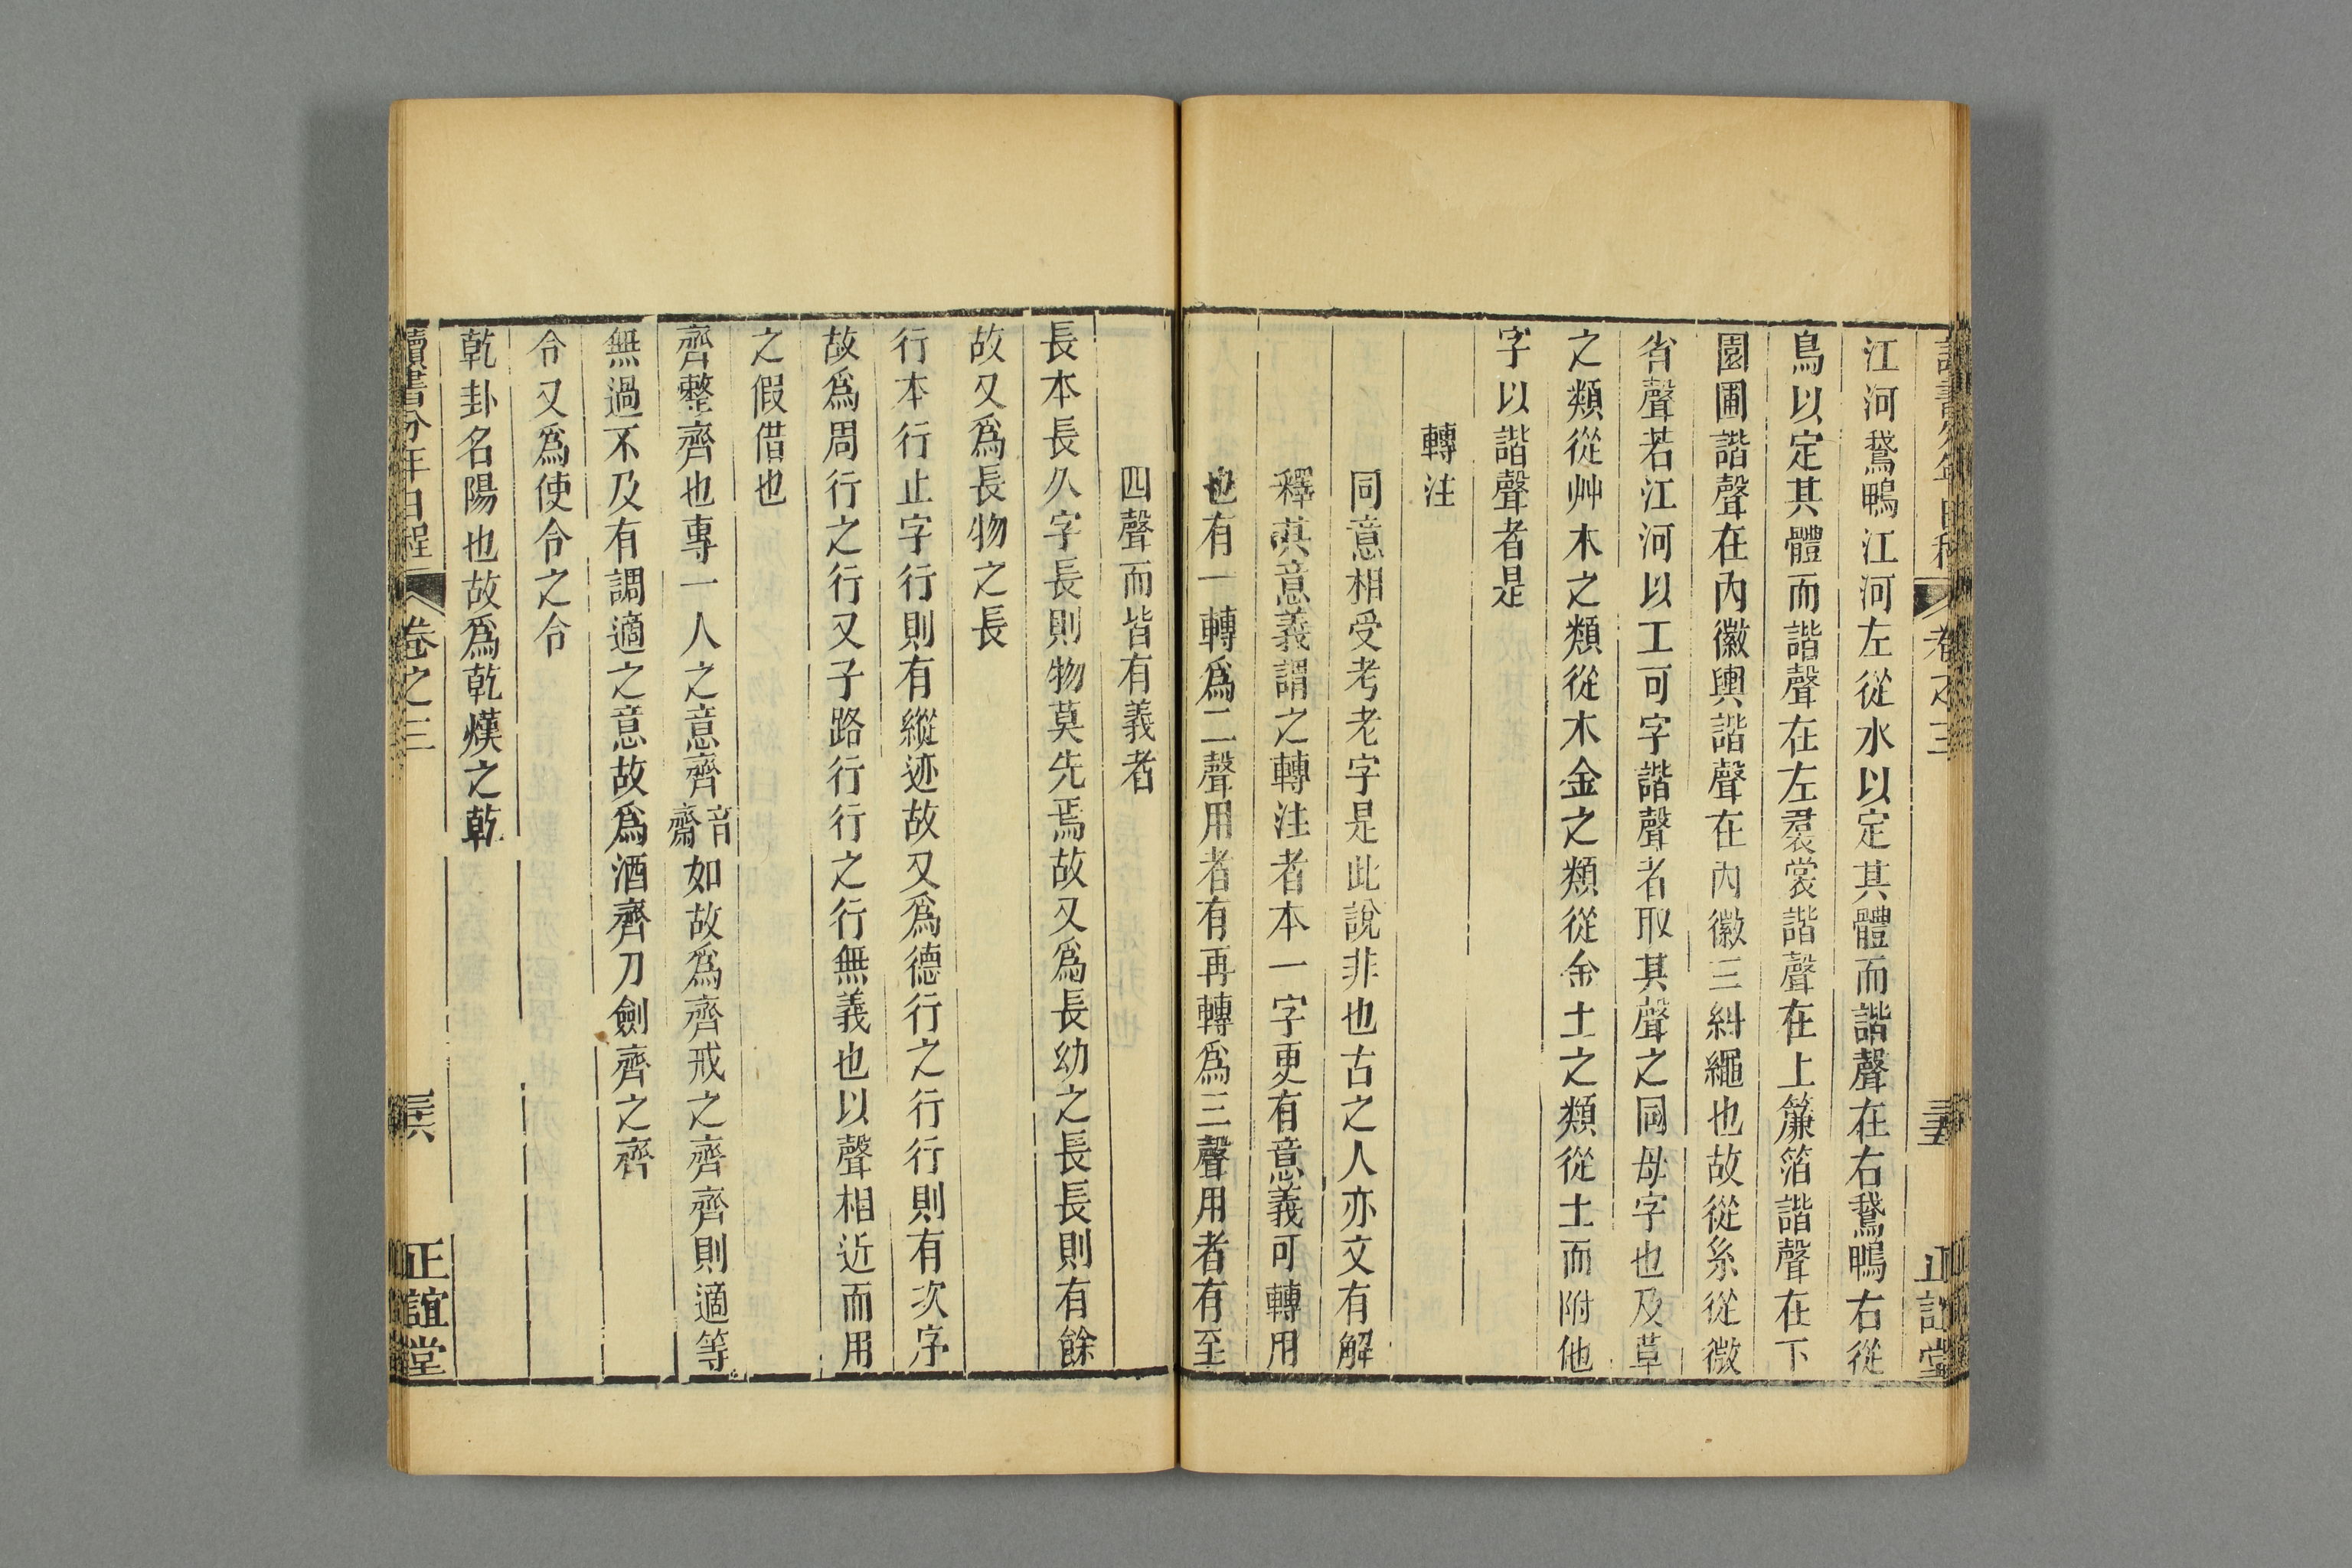 讀書分年日程 卷之三 三五 正誼堂
江河鵞鴨江河左從水以定其體而諧聲在右鵞鴨右從
鳥以定其體而諧聲在左裠裳諧聲在上簾箔諧聲在下
園圃諧聲在內徽輿諧聲在內徽三糾繩也故從糸從微
省聲若江河以工可字諧聲者取其聲之同母字也及草
之類從艸木之類從木金之類從金土之類從土而附他
字以諧聲者是
轉注
同意相受考老字是此說非也古之人亦文有解
釋其意義謂之轉注者本一字更有意義可轉用
也有一轉爲二聲用者有再轉爲三聲用者有至
四聲而皆有義者
長本長久字長則物莫先焉故又爲長幼之長長則有餘
故又爲長物之長
行本行止字行則有縱迹故又爲德行之行行則有次序
故爲周行之行又子路行行之行無義也以聲相近而用
之假借也
齊整齊也專一人之意齊音齋如故爲齊戒之齊齊則適等
無過不及有調適之意故爲酒齊刀劍齊之齊
令又爲使令之令
乾卦名陽也故爲乾熯之乾
讀書分年日程 卷之三 三六 正誼堂